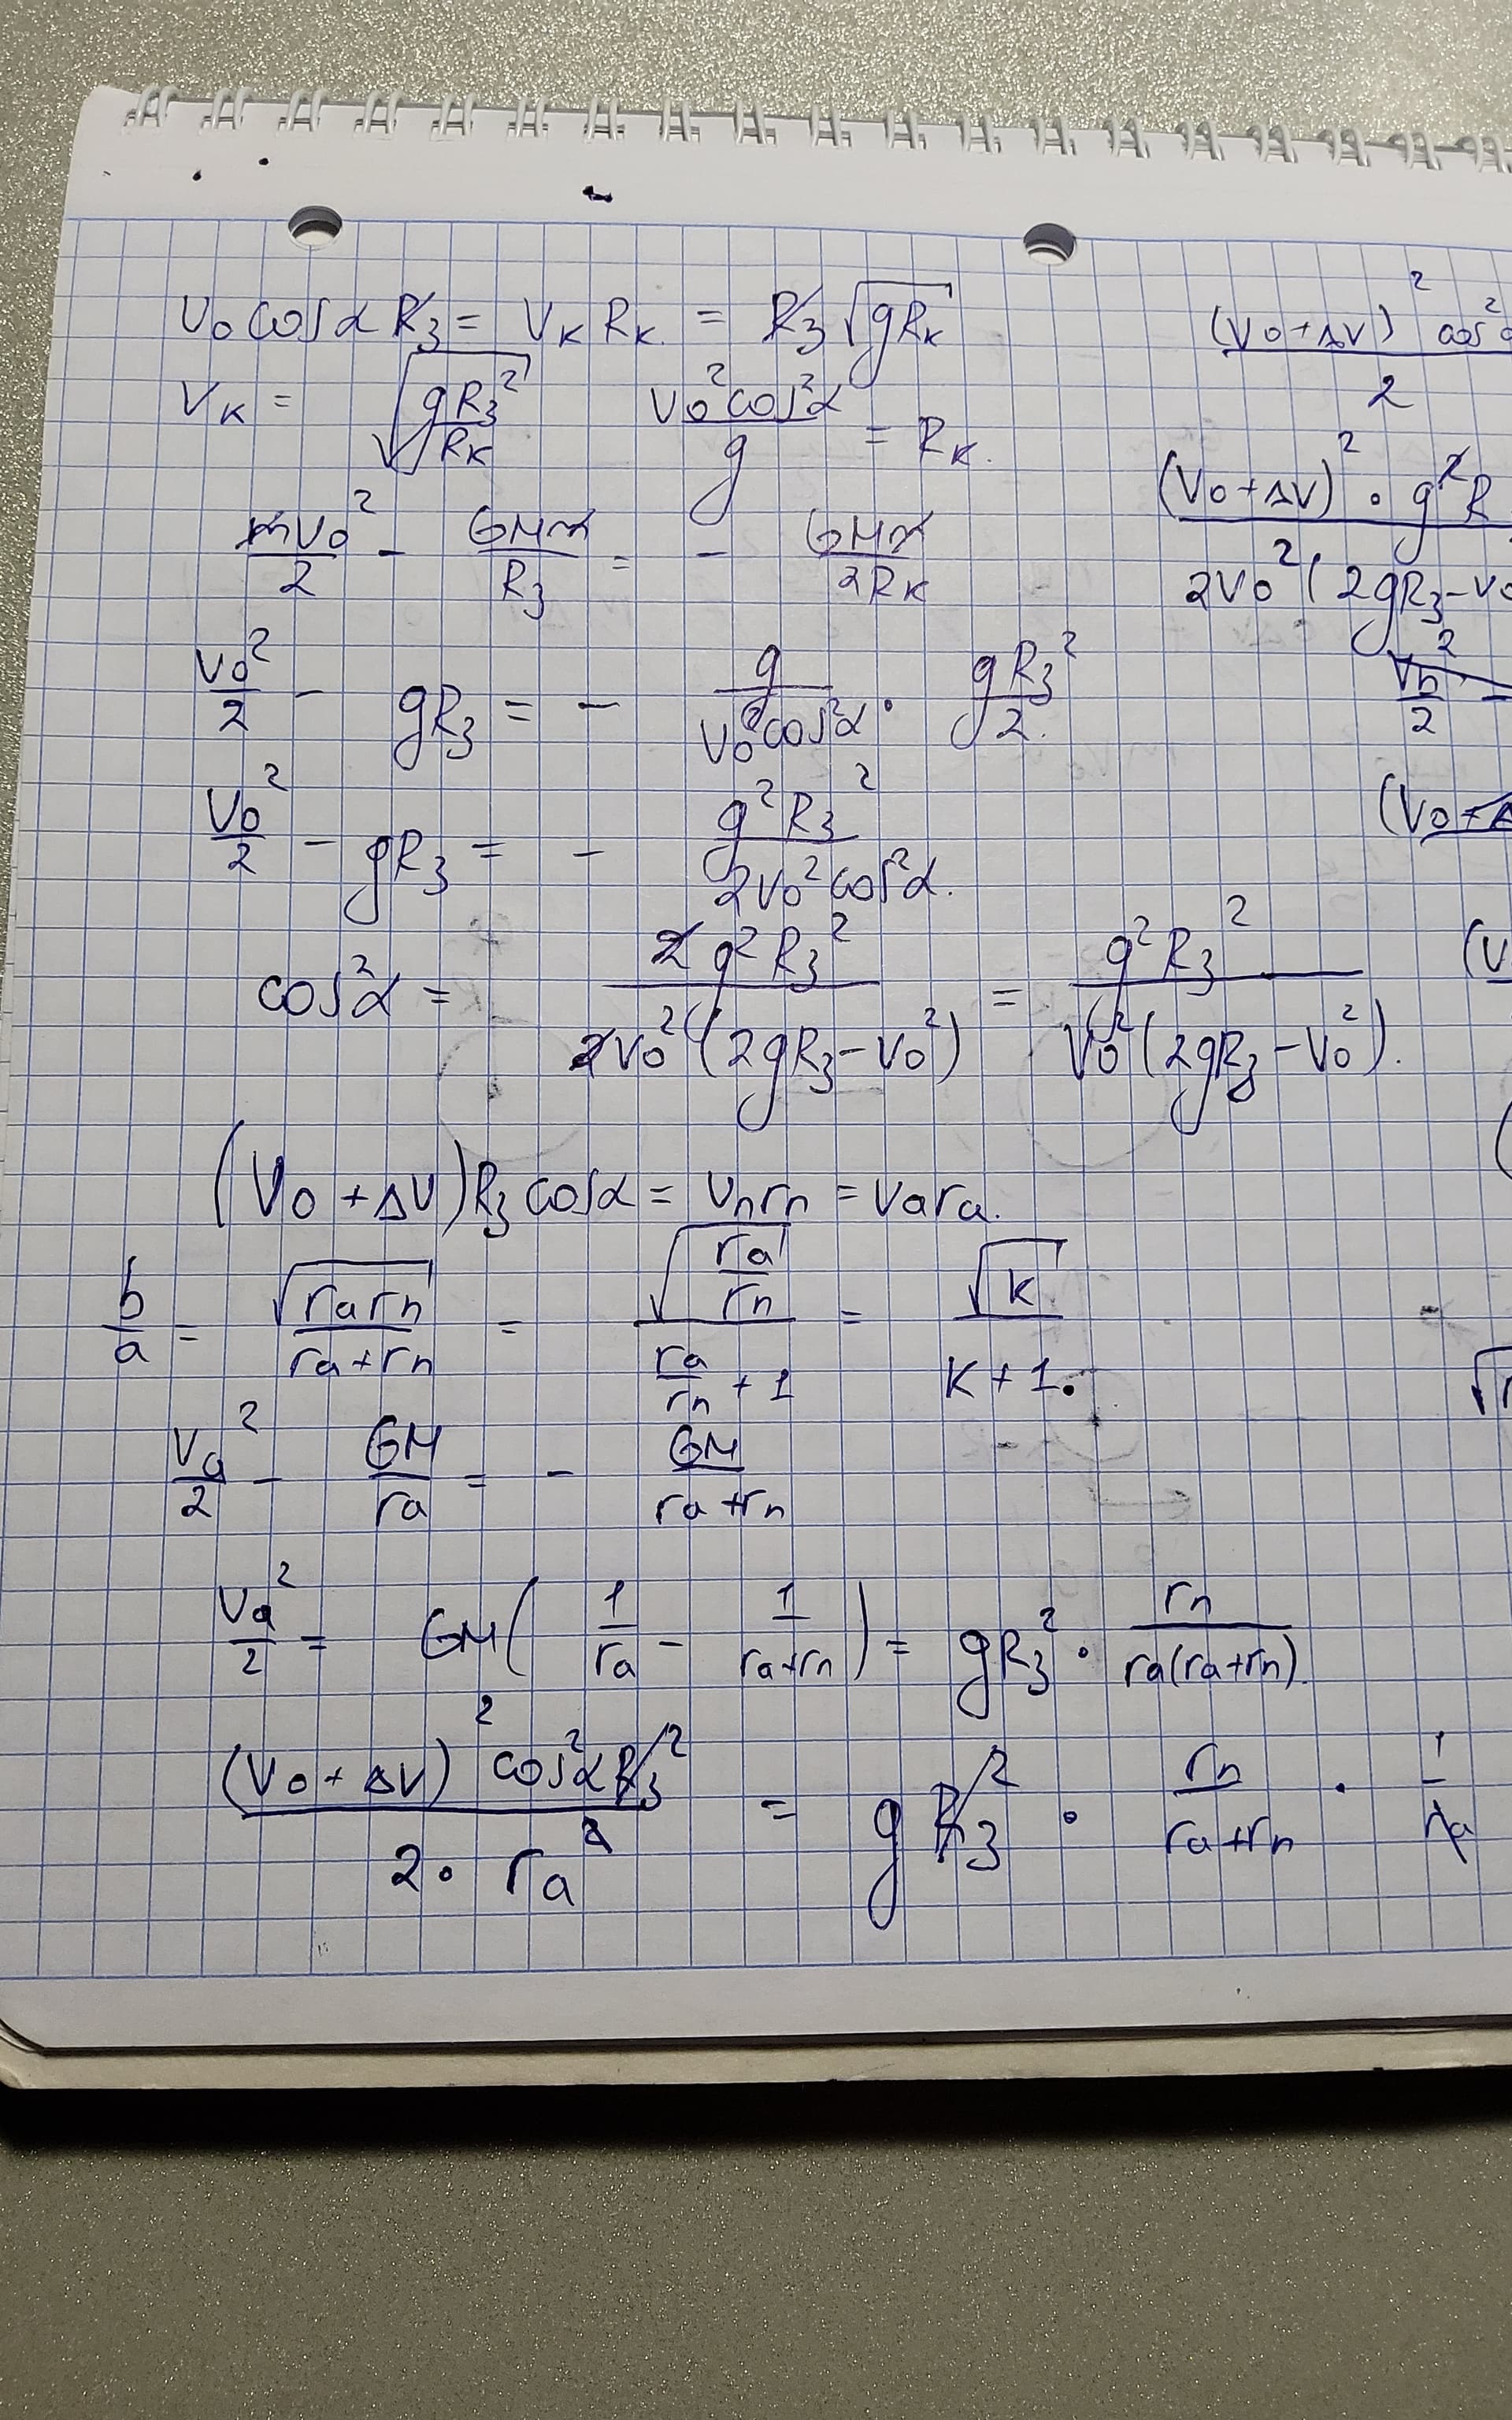 v₀ cosα R₃ = v_к R_к = R₃ √(gR_к)
v_к = √(gR₃²/R_к)    v₀²cos²α/g = R_к.
mv₀²/2 − GMm/R₃ = − GMm/2R_к
v₀²/2 − gR₃ = − g/(v₀²cos²α) · gR₃²/2.
v₀²/2 − gR₃ = − g²R₃²/(2v₀²cos²α).
cos²α = 2g²R₃²/(2v₀²(2gR₃−v₀²)) = g²R₃²/(v₀²(2gR₃−v₀²)).
(v₀+Δv)R₃cosα = v_п r_п = v_a r_a.
b/a = √(r_a r_п)/(r_a+r_п) = √(r_a/r_п)/(r_a/r_п + 1) = √k/(k+1).
v_a²/2 − GM/r_a = − GM/(r_a+r_п)
v_a²/2 = GM(1/r_a − 1/(r_a+r_п)) = gR₃² · r_п/(r_a(r_a+r_п)).
(v₀+Δv)²cos²αR₃²/(2·r_a²) = gR₃² · r_п/(r_a+r_п) · 1/r_a
(v₀+Δv)² cos²
2
(v₀+Δv)² · g²R
2v₀²(2gR₃−v₀
v_п²/2 −
(v₀+Δ